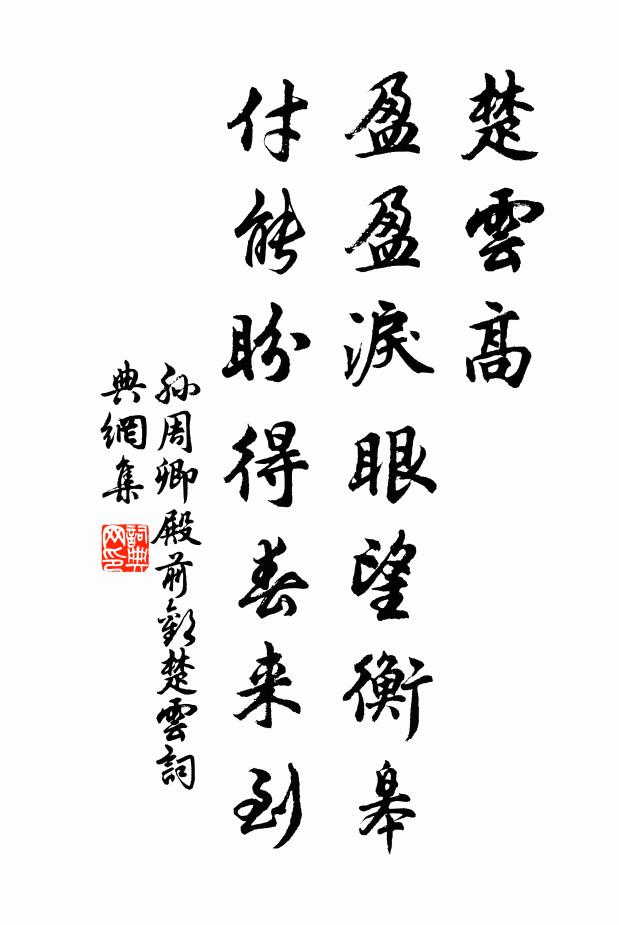 楚雲高
盈盈淚眼望衡皋
付能盼得春来到
孫周卿殿前歡楚雲詞
典網集
詞典
网印